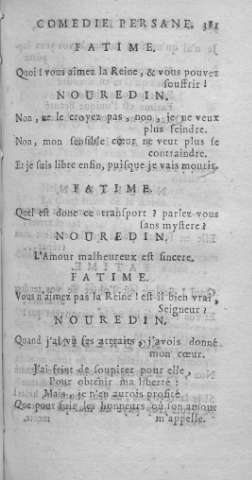 COMEDIE PERSANE. 381
FATIME.
Quoi ! vous aimez la Reine, & vous pouvez
souffrir !
NOUREDIN.
Non, ne le croyez pas, non, je ne veux
plus feindre.
Non, mon sensible cœur ne veut plus se
contraindre.
Et je suis libre enfin, puisque je vais mourir.
FATIME.
Quel est donc ce transport ? parlez vous
sans mystere ?
NOUREDIN.
L'Amour malheureux est sincere.
FATIME.
Vous n'aimez pas la Reine ! est il bien vrai,
Seigneur ?
NOUREDIN.
Quand j'ai vû ses attraits, j'avois donné
mon cœur.
J'ai feint de soupirer pour elle,
Pour obtenir ma liberté :
Mais, je n'en aurois profité
Que pour fuir les honneurs où son amour
m'appelle.